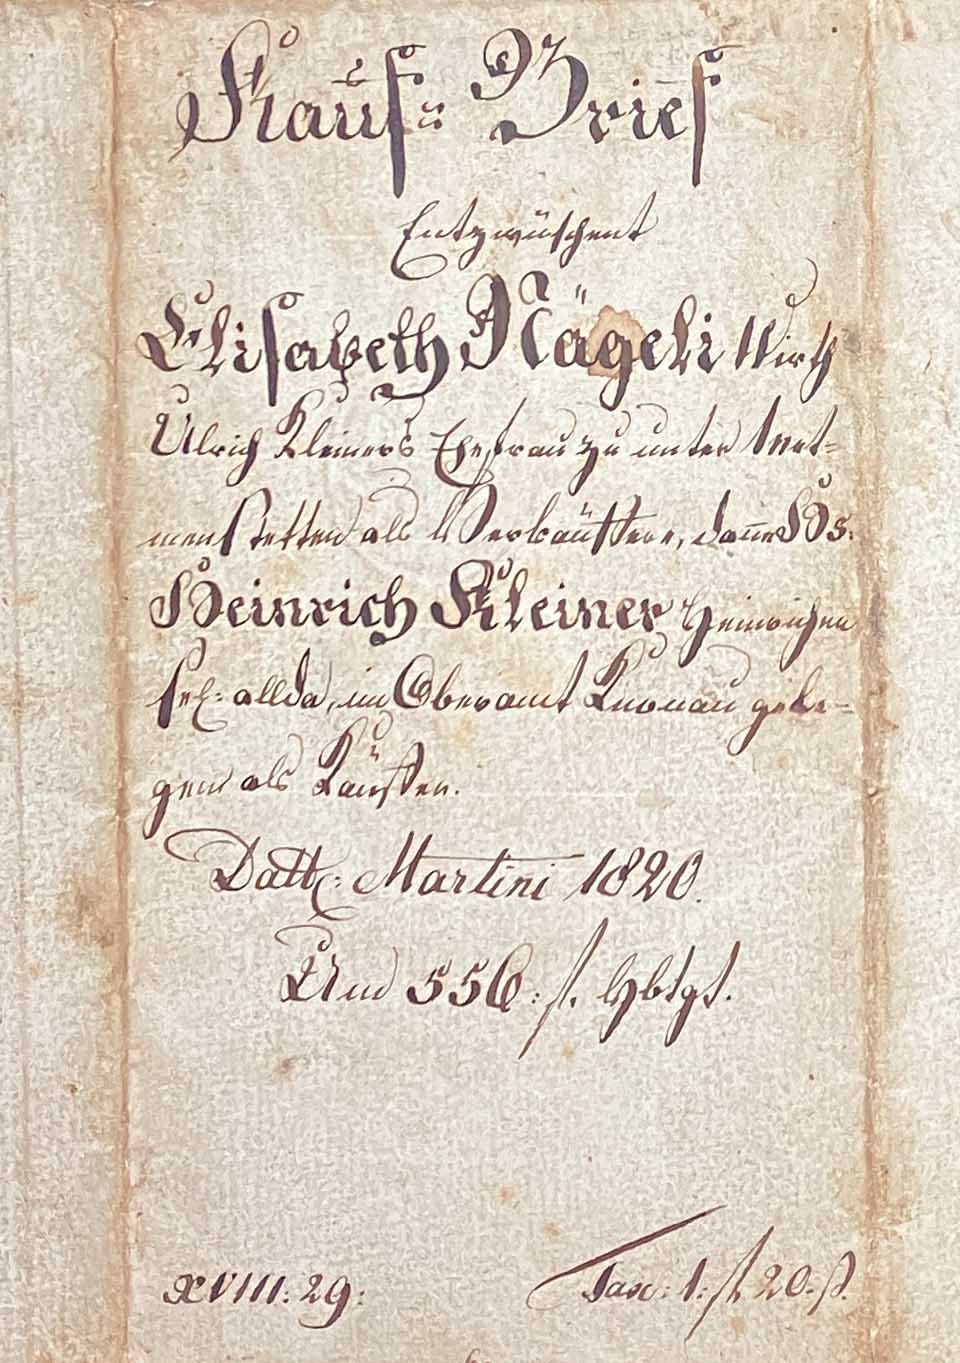 Kauf-Brief
Entzwüschent
Elisabeth Nägeli Wirth
Ulrich Kleiners Ehefrau zu unter Met-
menstetten als Verkäüffere, dann
Heinrich Kleiner Heinrichen
sel: allda, im Oberamt Knonau gele-
gen als Käüffer.
Datt: Martini 1820.
Um 556: fl.
XVIII: 29:
Tax: 1: fl 20. ß.